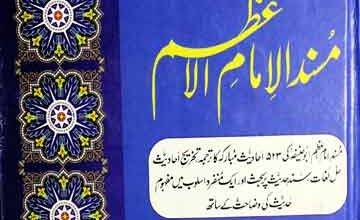 مُسند الإمام الأعظم
مُسند امام عظم ابو حنیفہ کی ۵۲۳ احادیث مبارکہ کا ترجمہ تخریج احادیث
حل لغات سند حدیث پر بحث اور ایک منفرد اسلوب میں مفہوم
حدیث کی وضاحت کے ساتھ